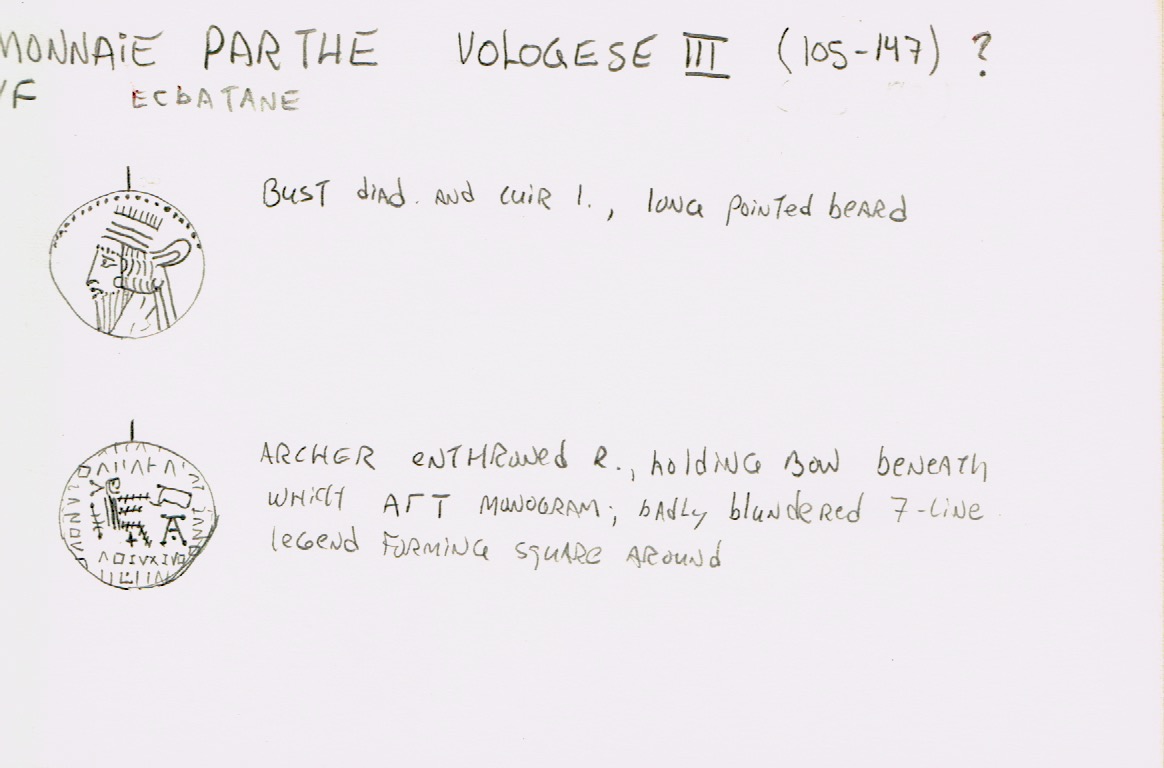 MONNAIE PARTHE VOLOGESE III (105-147) ?
VF ECBATANE
BUST diAD. AND CUIR l., lONG POINTED BEARD
ARCHER ENTHRONED R., HOLDING BOW BENEATH
WHICH AΓT MONOGRAM; BADLY BLUNDERED 7-LINE
LEGEND FORMING SQUARE AROUND